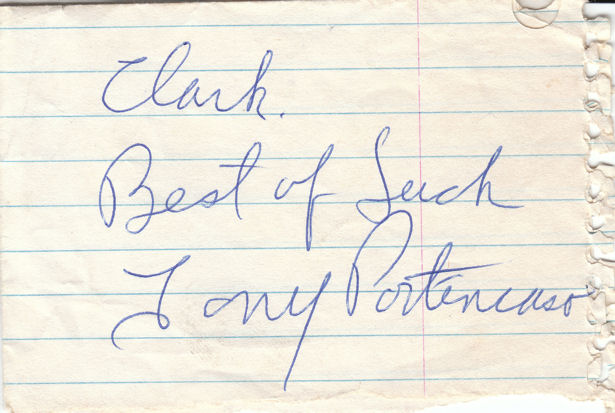 Clark.
Best of Luck
Tony Portencaso